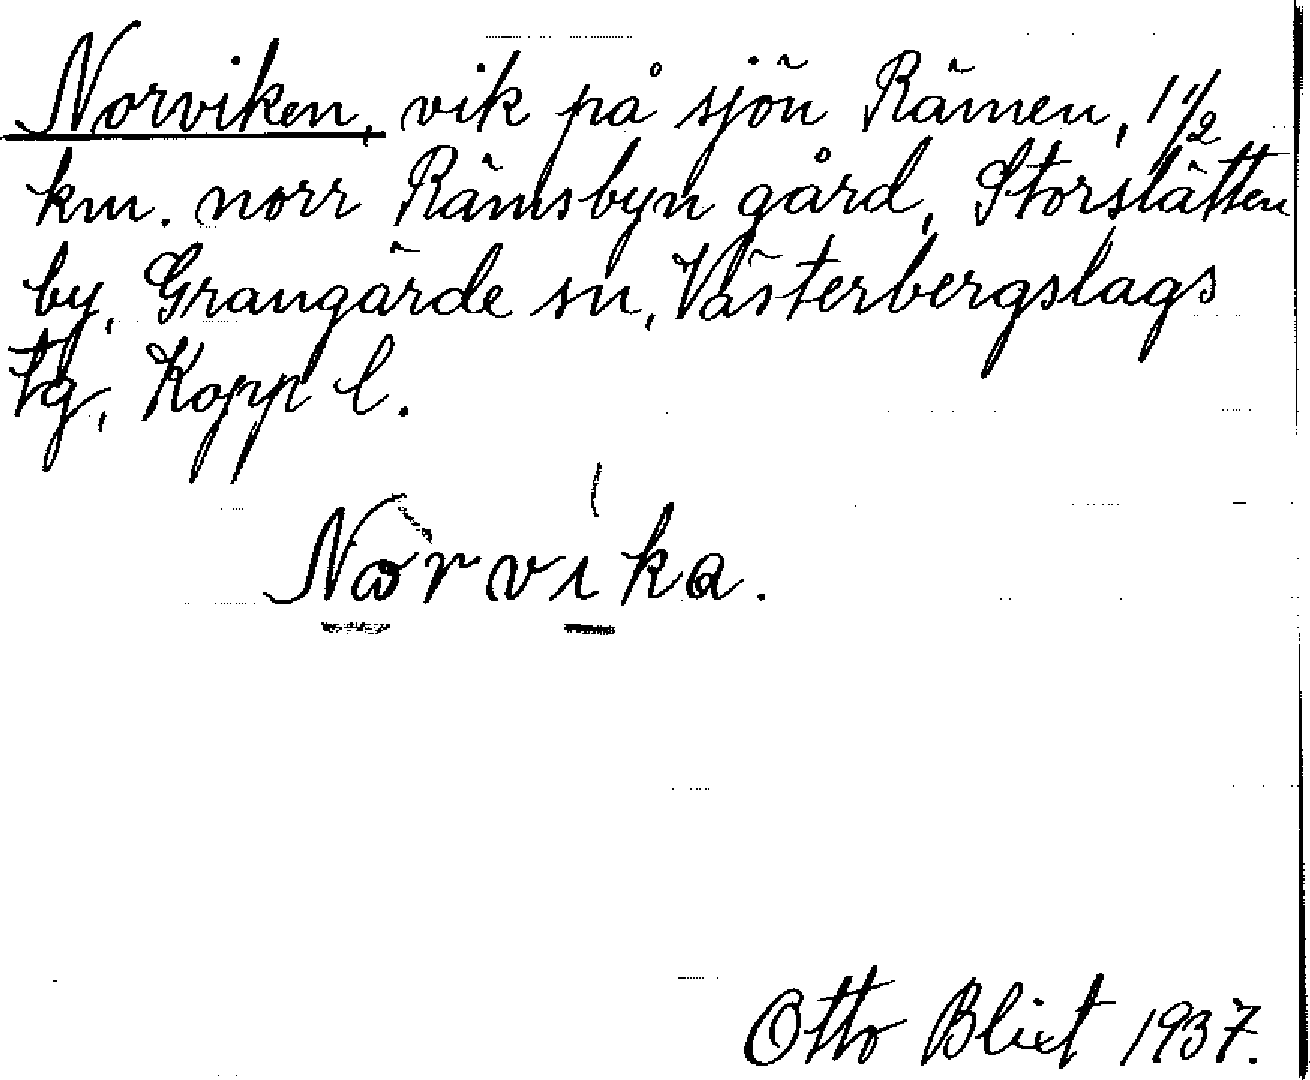 Norviken, vik på sjön Rämen, 1 1/2
km. norr Rämsbyn gård, Storslätten
by, Grangärde sn, Västerbergslags
tg, Kopp l.
Nòrvíka.
Otto Blixt 1937.